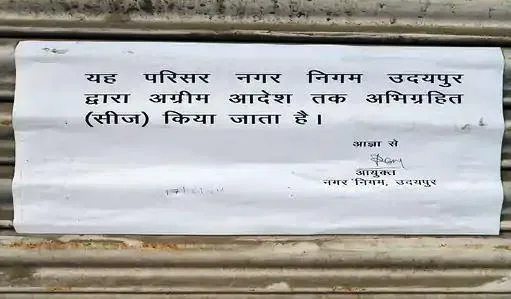 यह परिसर नगर निगम उदयपुर
द्वारा अग्रीम आदेश तक अभिग्रहित
(सीज) किया जाता है।
आज्ञा से
आयुक्त
नगर निगम, उदयपुर